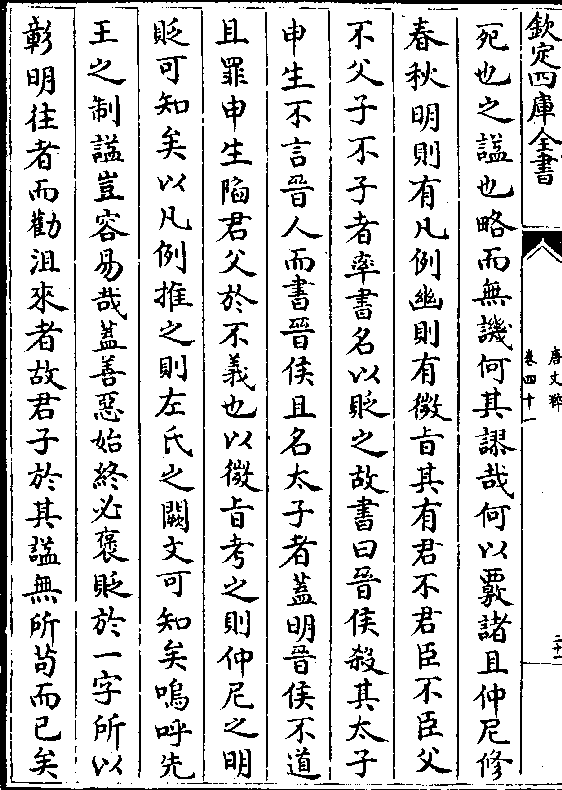 欽定四庫全書
唐文粹
卷四十一
二十一
死也之諡也略而無譏何其謬哉何以覈諸且仲尼修
春秋明則有凡例幽則有微旨其有君不君臣不臣父
不父子不子者率書名以貶之故書曰晉侯殺其太子
申生不言晉人而書晉侯且名太子者蓋明晉侯不道
且罪申生陷君父於不義也以微旨考之則仲尼之明
貶可知矣以凡例推之則左氏之闕文可知矣嗚呼先
王之制諡豈容易哉蓋善惡始終必褒貶於一字所以
彰明往者而勸沮來者故君子於其諡無所苟而已矣